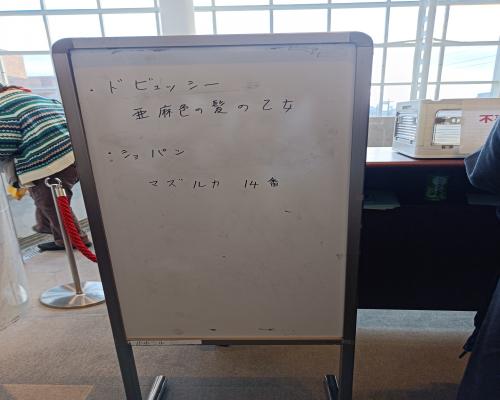 ・ドビュッシー
亜麻色の髪の乙女
・ショパン
マズルカ 14番
不